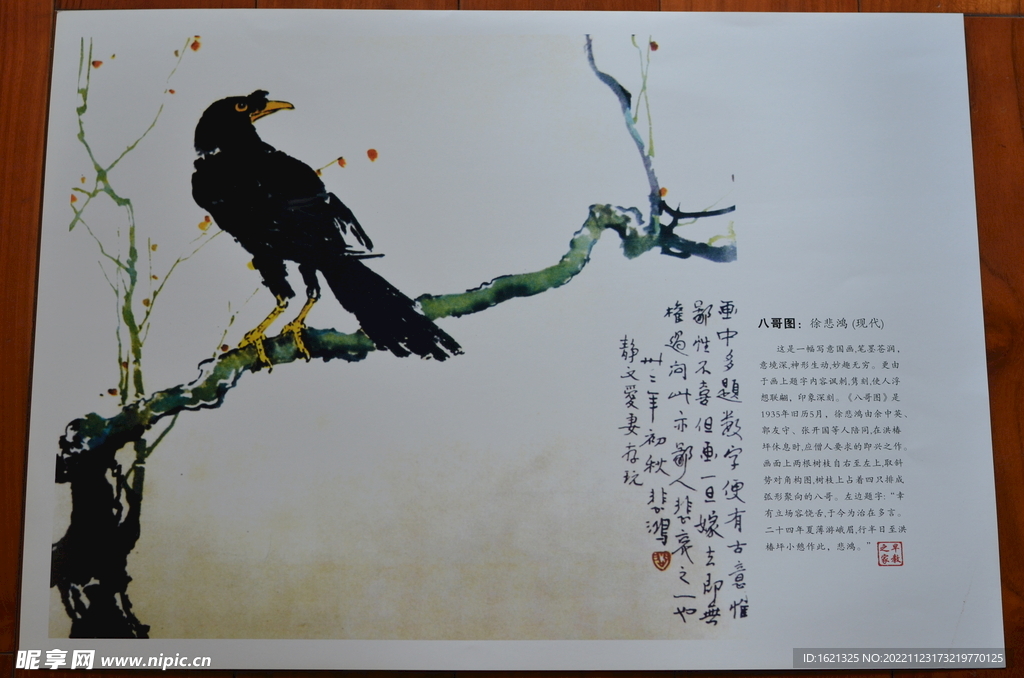 画中多题数字便有古意惟
鄙性不喜但画一旦嫁去即無
権過问此亦鄙人悲哀之一也
卅二年初秋 悲鴻
静文愛妻存玩
八哥图：徐悲鸿(现代)
这是一幅写意国画,笔墨苍润,
意境深,神形生动,妙趣无穷。更由
于画上题字内容讽刺,隽刻,使人浮
想联翩，印象深刻。《八哥图》是
1935年旧历5月，徐悲鸿由余中英、
郭友守、张开国等人陪同,在洪椿
坪休息时,应僧人要求的即兴之作。
画面上两根树枝自右至左上,取斜
势对角构图,树枝上占着四只排成
弧形聚向的八哥。左边题字：“幸
有立场容饶舌,于今为治在多言。
二十四年夏薄游峨眉,行年日至洪
椿坪小憩作此，悲鸿。”
早教之家
昵享网 www.nipic.cn
ID:1621325 NO:20221123173219770125